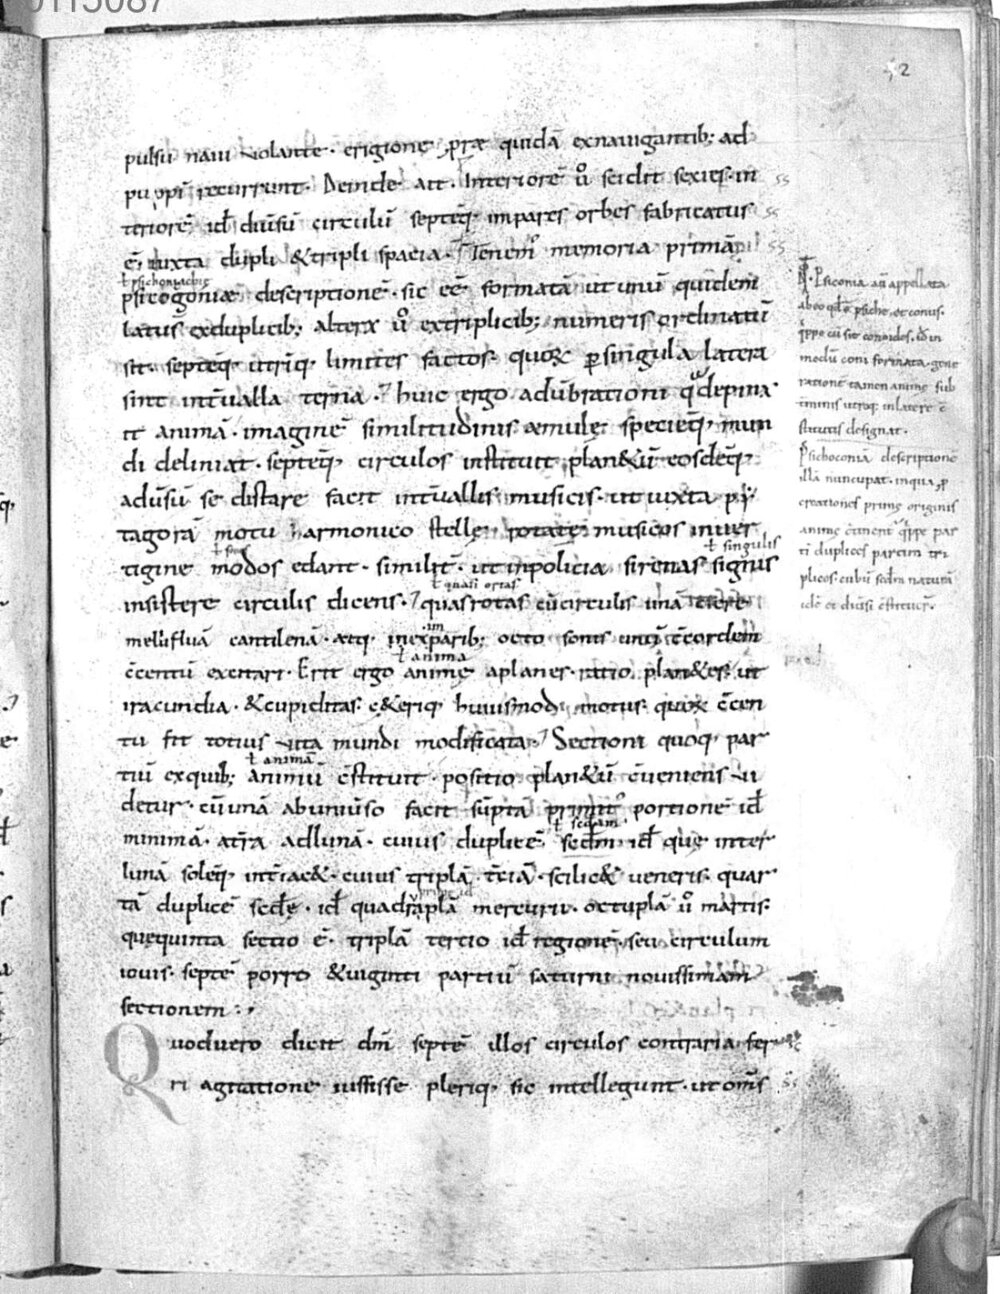 0115087
52
pulsu naui uolante · erigione p̱ræ quidā exnauigantib; ad
puppi recurrunt · Deinde ait · Interiorē ũ scidit sexies · in
teriorē id÷ diũsũ circulũ septeq; impares orbes fabricatus
ē · iuxta dupli &tripli spacia · Tenem᷒ memoria primā
ł psichoniachie
psicogoniæ descriptionē · sic eē formatā ut unũ quidem
latus exduplicib; alterx ũ extriplicib; numeris ordinatũ
sit · septeq; utriq; limites factos · quoꝝ p̱singula latera
sint int̃ualla terna · huic ergo adũbrationi q̃ depinx
it animā · imaginē similitudinis æmulę specieq; mun
di deliniat · septeq; circulos instituit plan&ũ eosdeq;
adũsũ se distare facit int̃uallis musicis · ut iuxta py
tagorā motu harmonico stellę rotatę musicos inuer
ł singulis
tigine modos edant · similit̃ · ut inpolicia sirenas signis
ł quasi ortas
insistere circulis dicens · quasrotas cũcirculis unā ciere
mellifluā cantilenā · atq; inexparib; octo sonis unũ c̄cordem
ł anima
c̄centũ excitari · Erit ergo animę aplanes · ratio plan&es ut
iracundia · &cupiditas · c&eriq; huiusmodi motus · quoꝝ c̄cen
tu fit totius uita mundi modificata · Sectioni quoq; par
ł animā
tiũ exquib; animũ c̄stituit · positio plan&ũ c̄ueniens ui
detur · cũunā abuniũso facit sũptā primit᷒ portionē id÷
ł secdam
minimā · at̃ra adlunā · cuius duplicē sec̄dm · id÷ que inter
lunā soleq; int̃iac& · cuius triplā t̃ciā · scilic& ueneris · quar
tā duplicē secdę · id÷ quadruplā mercurii · octuplā ũ martis ·
quequinta sectio ē · triplā tertio id÷ regionē seu circulum
iouis · septē porro &uiginti partiũ saturni nouissimam
sectionem :,
Quoduero dicit dm̄ septē illos circulos contraria fer
ri agitatione iussisse pleriq; sic intellegunt · ut om̄s
Psiconia aũ appellata
abeo qđ ē psiche · et conus ·
q̇ppe cũ sit conoides · id÷ in
modũ coni formata · gene
rationē tamen animę sub
terminis utroq; inlatere c̄
stitutis designat ·
Psichoconiā descriptionē
illā nuncupat · inqua p̱
creationes prime originis
animę c̄tinent᷒ q̇ppe par
ti duplices partim tri
plices · cubũ scdm̄ naturā
idē et diũsi c̄stituit᷒ ·